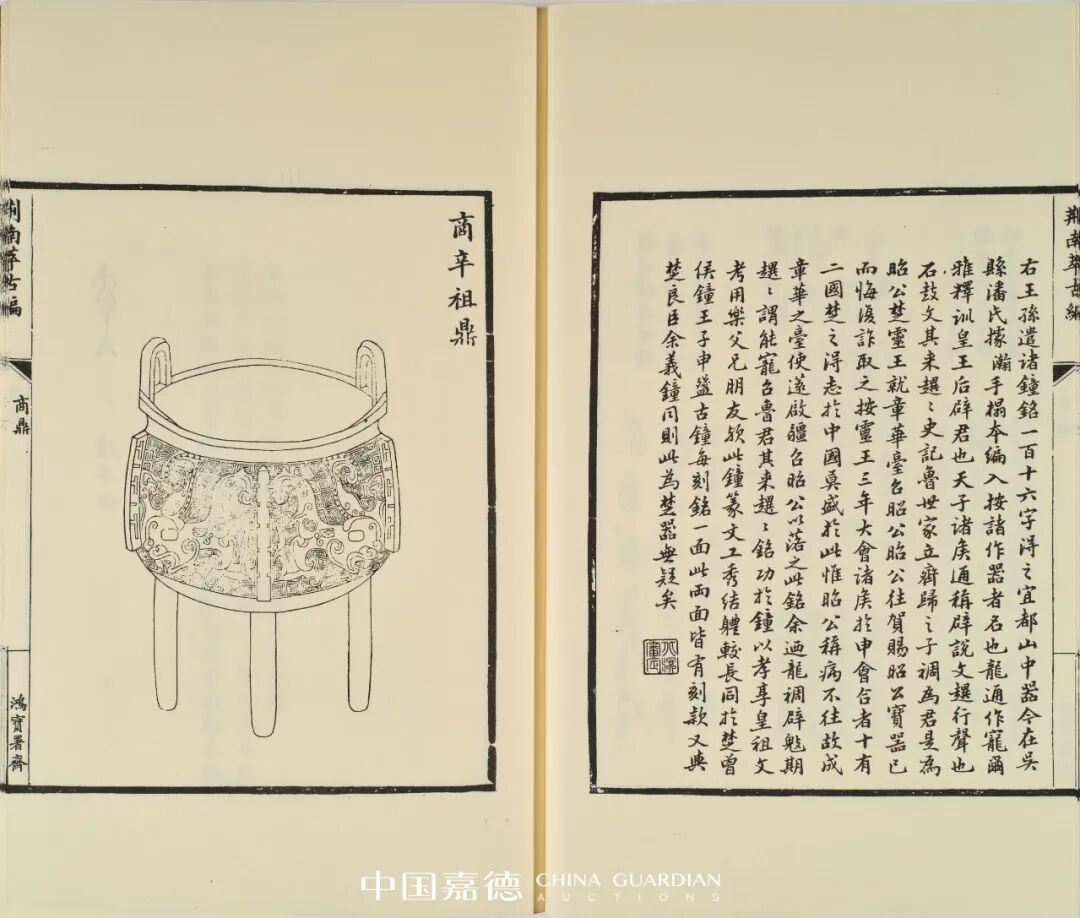 荊南萃古編
右王孫遣諸鐘銘一百十六字淂之宜都山中器今在吳
縣潘氏據瀚手搨本編入按諸作器者名也龍通作寵爾
雅釋訓皇王后辟君也天子諸矦通稱辟說文趩行聲也
石鼓文其来趩〻史記魯世家立齊歸之子裯為君是為
昭公楚靈王就章華臺召昭公昭公往賀賜昭公寶器已
而悔復詐取之按靈王三年大會諸矦於申會合者十有
二國楚之淂志於中國莫盛於此惟昭公稱病不往故成
章華之臺使薳啟疆召昭公以落之此銘余迺龍裯辟期
趩〻謂能寵召魯君其来趩〻銘功於鐘以孝享皇祖文
考用樂父兄朋友此鐘篆文工秀结體較長同於楚曾
侯鐘王子申盞古鐘每刻銘一面此両面皆有刻款又與
楚良臣余義鐘同則此為楚器無疑矣
商辛祖鼎
荊南萃古編
商鼎
鴻寶署齋
中国嘉德 CHINA GUARDIAN
AUCTIONS